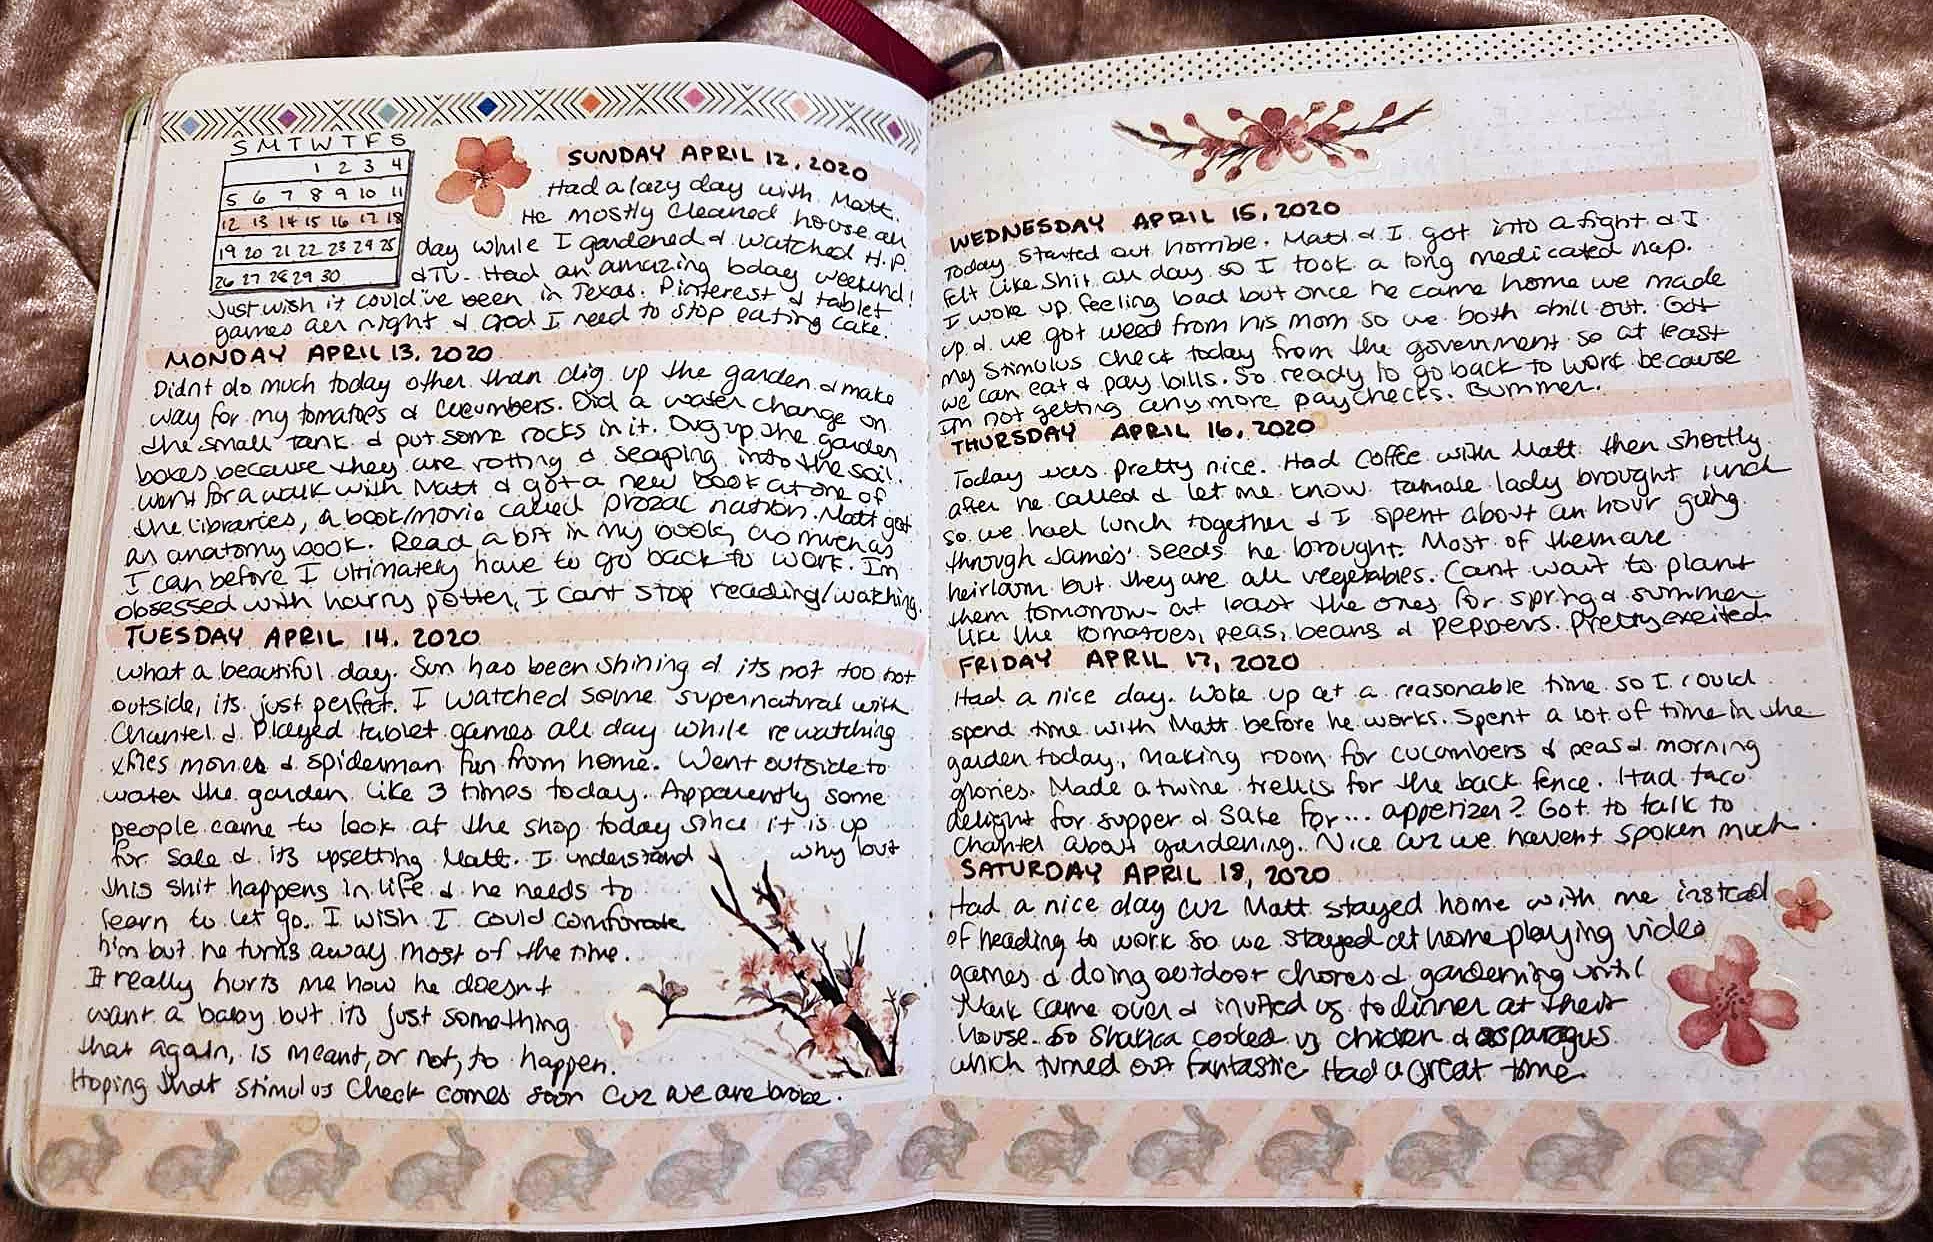 S M T W T F S
1 2 3 4
5 6 7 8 9 10 11
12 13 14 15 16 17 18
19 20 21 22 23 24 25
26 27 28 29 30
SUNDAY APRIL 12, 2020
Had a lazy day with Matt.
He mostly cleaned house all
day while I gardened & watched H.P.
& TV. Had an amazing bday weekend!
Just wish it could've been in Texas. Pinterest & tablet
games all night & God I need to stop eating cake.
MONDAY APRIL 13, 2020
Didnt do much today other than dig up the garden & make
way for my tomatoes & cucumbers. Did a water change on
the small tank & put some rocks in it. Dug up the garden
boxes because they are rotting & seaping into the soil.
Went for a walk with Matt & got a new book at one of
the libraries, a book/movie called prozac nation. Matt got
an anatomy book. Read a bit in my book, as much as
I can before I ultimately have to go back to work. Im
obsessed with harry potter, I cant stop reading/watching.
TUESDAY APRIL 14. 2020
What a beautiful day. Sun has been shining & its not too hot
outside, its just perfect. I watched some supernatural with
Chantel & Played tablet games all day while rewatching
xfiles movies & spiderman fun from home. Went outside to
water the garden like 3 times today. Apparently some
people came to look at the shop today since it is up
for sale & its upsetting Matt. I understand why but
this shit happens in life & he needs to
learn to let go. I wish I could comfort
him but he turns away most of the time.
It really hurts me how he doesnt
want a baby but its just something
that again, is meant, or not, to happen.
Hoping that stimulus check comes soon cuz we are broke.
WEDNESDAY APRIL 15, 2020
Today started out horrible. Matt & I got into a fight & I
felt like shit all day so I took a long medicated nap.
I woke up feeling bad but once he came home we made
up & we got weed from his mom so we both chill out. Got
my stimulus check today from the government so at least
we can eat & pay bills. So ready to go back to work because
Im not getting anymore paychecks. Bummer.
THURSDAY APRIL 16, 2020
Today was pretty nice. Had coffee with Matt then shortly
after he called & let me know tamale lady brought lunch
so we had lunch together & I spent about an hour going
through James' seeds he brought. Most of them are
heirloom but they are all vegetables. Cant wait to plant
them tomorrow- at least the ones for spring & summer
like the tomatoes, peas, beans & peppers. Pretty excited
FRIDAY APRIL 17, 2020
Had a nice day. Woke up at a reasonable time so I could
spend time with Matt before he works. Spent a lot of time in the
garden today, making room for cucumbers & peas & morning
glories. Made a twine trellis for the back fence. Had taco
delight for supper & sake for... appetizer? Got to talk to
Chantel about gardening. Nice cuz we havent spoken much.
SATURDAY APRIL 18, 2020
Had a nice day cuz Matt stayed home with me instead
of heading to work so we stayed at home playing video
games & doing outdoor chores & gardening until
Mark came over & invited us to dinner at their
house. So Shakira cooked us chicken & asparagus
which turned out fantastic Had a great time